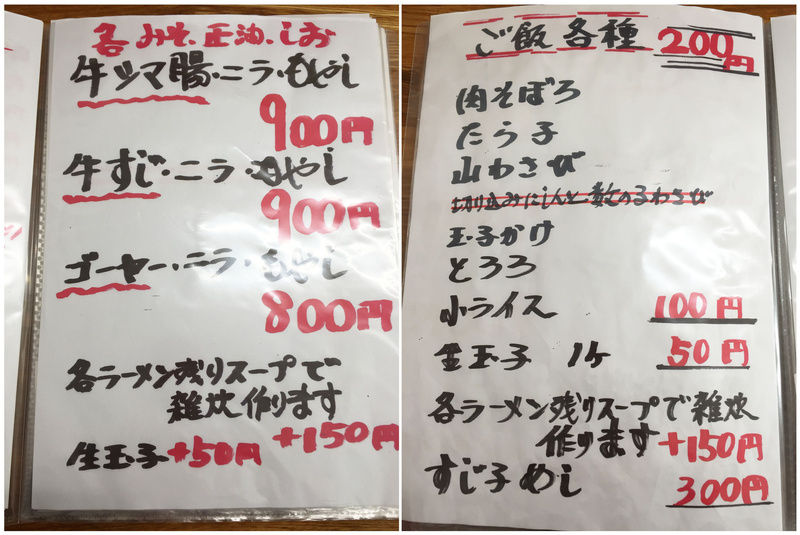 各みそ、正油、しお
牛シマ腸・ニラ・もやし
900円
牛すじ・ニラ・もやし
900円
ゴーヤー・ニラ・もやし
800円
各ラーメン残りスープで
雑炊作ります
+150円
生玉子+50円
ご飯各種 200円
肉そぼろ
たら子
山わさび
切り込みにしんと数の子わさび
玉子かけ
とろろ
小ライス 100円
生玉子 1ケ 50円
各ラーメン残りスープで雑炊
作ります+150円
すじ子めし
300円